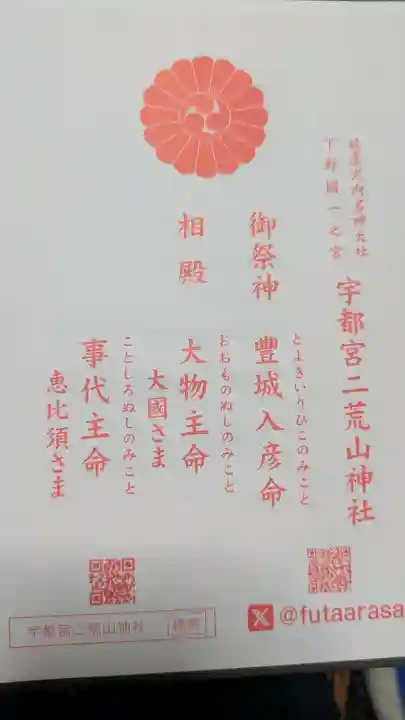 延喜式内名神大社
下野國一之宮
宇都宮二荒山神社
御祭神
とよきいりひこのみこと
豊城入彦命
相殿
おおものぬしのみこと
大物主命
大國さま
ことしろぬしのみこと
事代主命
恵比須さま
宇都宮二荒山神社 検索
X @futaarasa